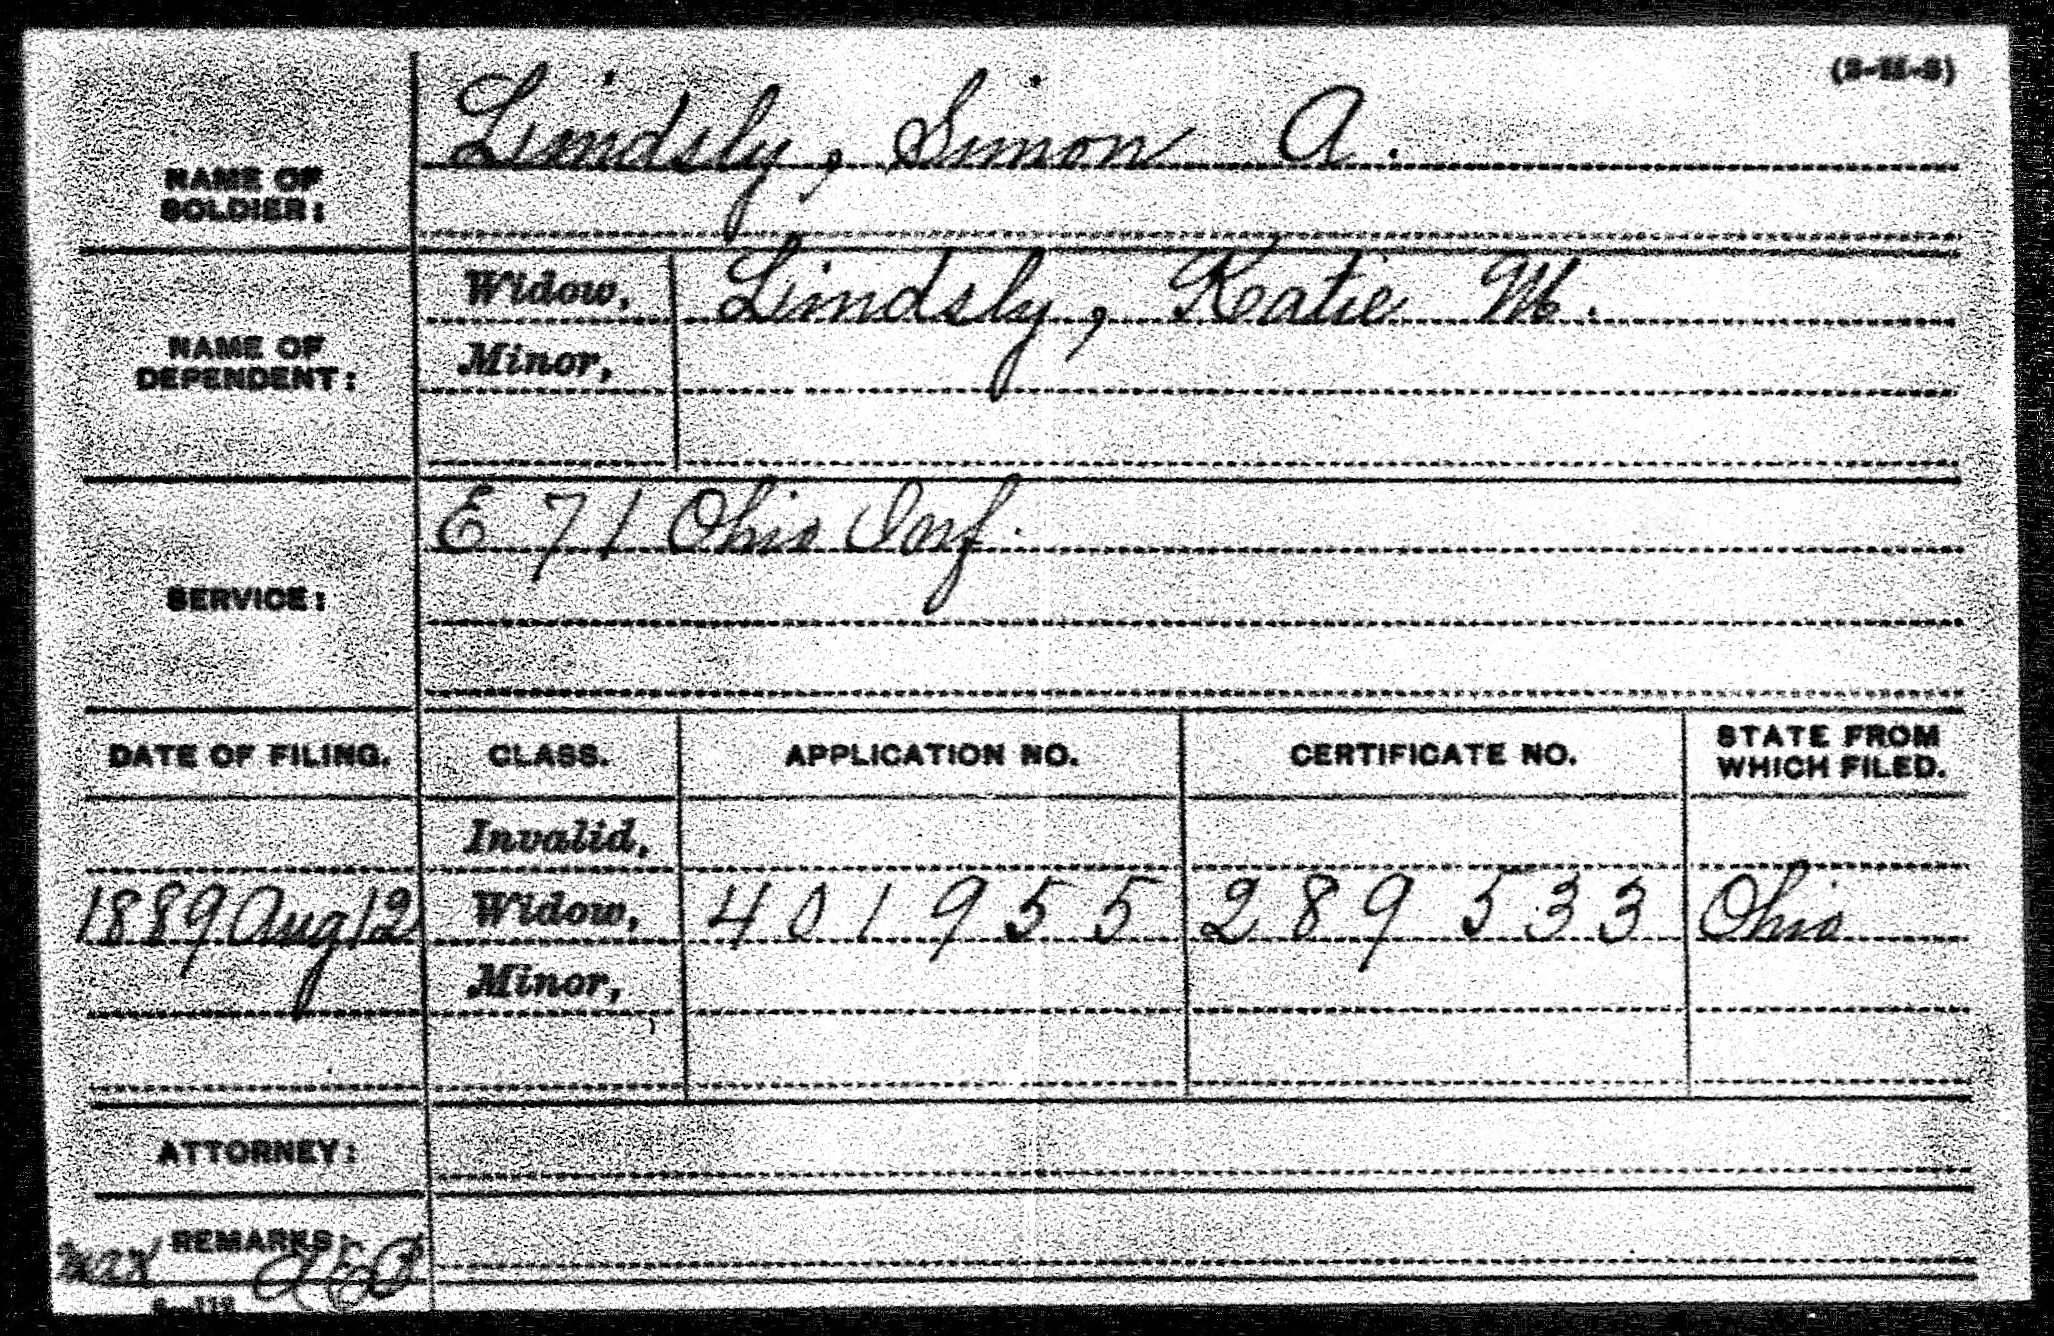 Lindsly, Simon A.
NAME OF
SOLDIER:
Widow, Lindsly, Katie M.
NAME OF
DEPENDENT:
Minor,
E 71 Ohio Inf.
SERVICE:
DATE OF FILING. CLASS. APPLICATION NO. CERTIFICATE NO. STATE FROM WHICH FILED.
Invalid,
1889 Aug 12 Widow, 401955 289533 Ohio
Minor,
ATTORNEY:
REMARKS: